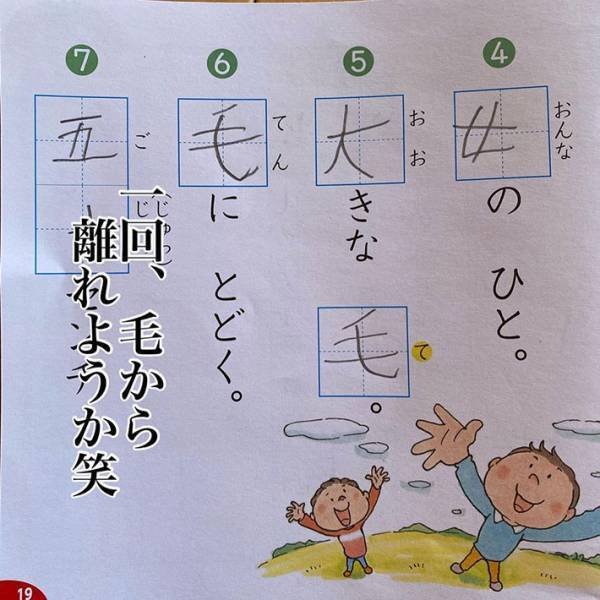 4
女の ひと。
おんな
5
大きな 毛。
おお
て
6
毛に とどく。
てん
7
五
ご
じ
一回、毛から
離れようか笑
19